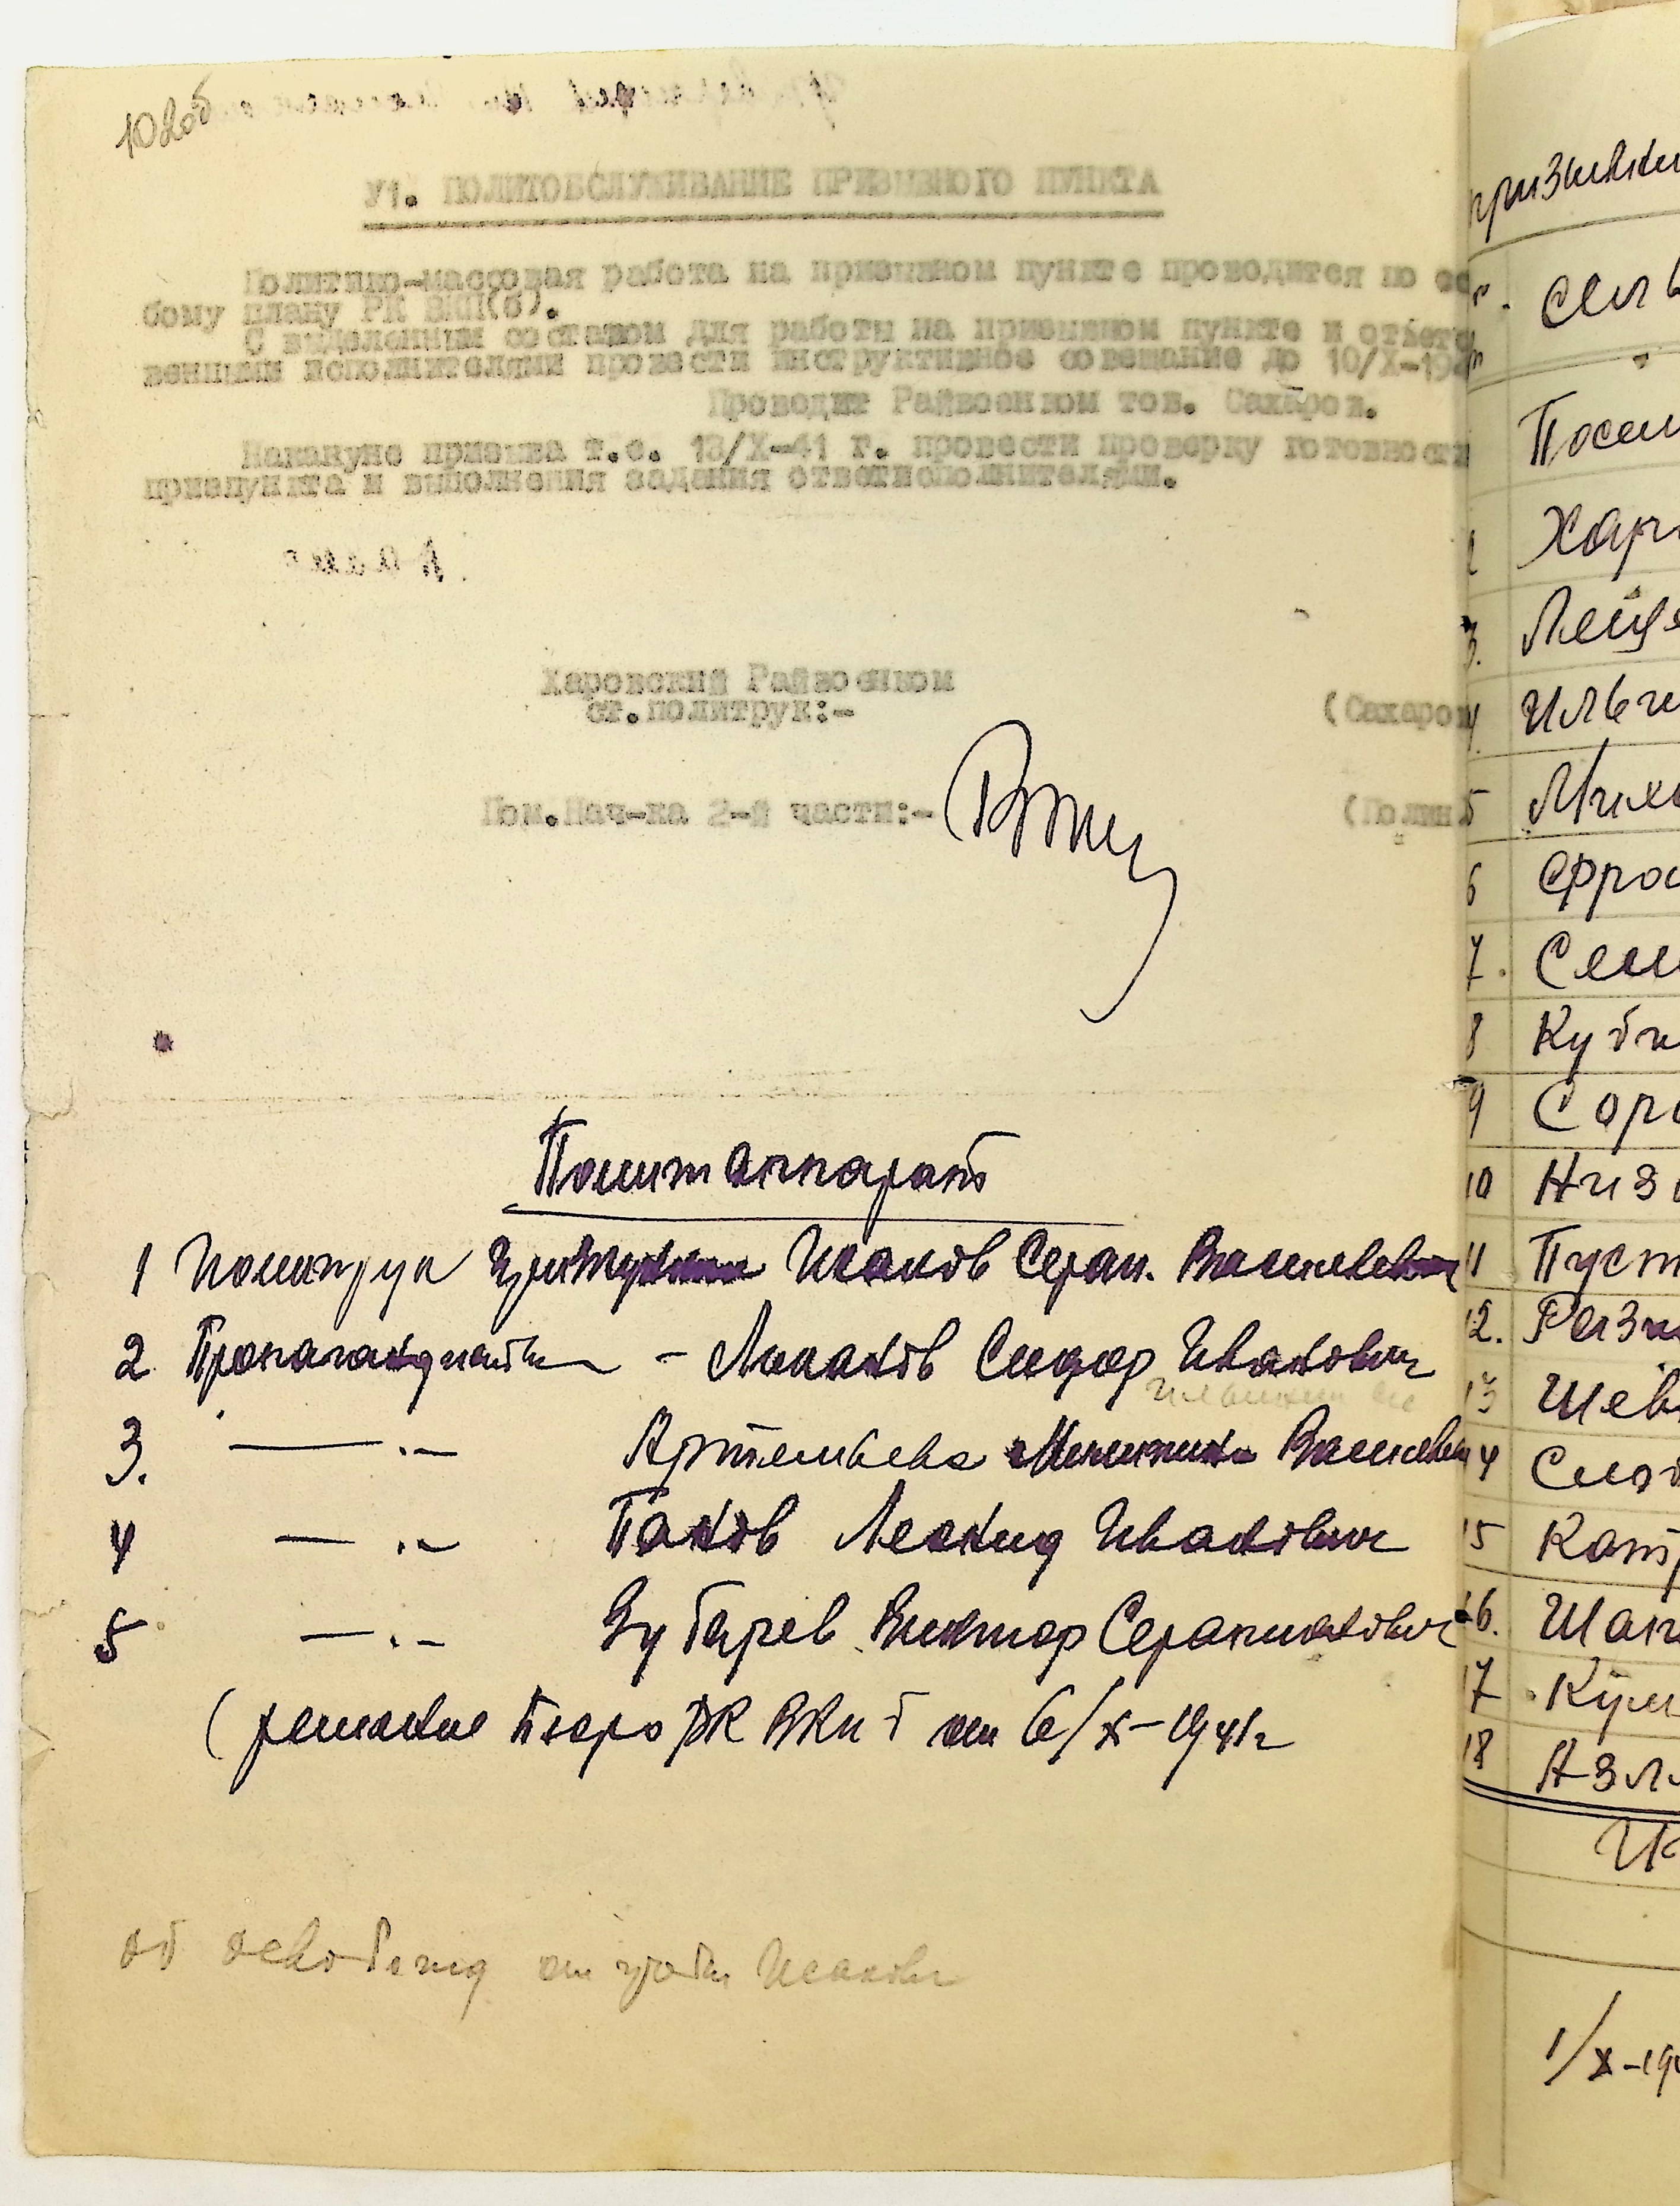 108об
У1. ПОЛИТОБСЛУЖИВАНИЕ ПРИЗЫВНОГО ПУНКТА
Политико-массовая работа на призывном пункте проводится по осо
бому плану РК ВКП(б).
С выделенным составом для работы на призывном пункте и ответст
венными исполнителями провести инструктивное совещание до 10/Х-194
Проводит Райвоенком тов. Сахаров.
Накануне призыва т.е. 13/Х-41 г. провести проверку готовности
призпункта и выполнения задания ответисполнителями.
Харовский Райвоенком
ст.политрук:-
(Сахаров
Пом.Нач-ка 2-й части:-
Политаппарат
1 Политрук Исаков Серап. Васильевич
2 Пропагандисты - Липаков Сидор Иванович
3. —.— Артемьева Васильев
4 —.— Панов Леонид Иванович
5 —.— Зубарев Виктор Серапионович
(решение бюро РК ВКП б от 6/х-1941г
об освобожд от учебы Исакова
призывни
сель
1
Посел
2 Хар
3. Леще
4. Ильи
5 Миха
6 Фро
7. Сем
8 Куби
9 Соро
10 Низ
11 Пуст
12. Разн
13 Шев
14 Слоб
15 Кат
16. Шап
17 Кум
18 Азл
1/х-19